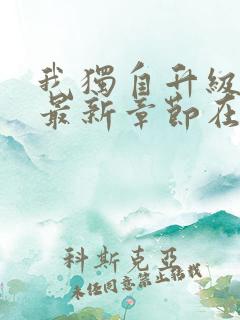 我獨自升級
最新章節在
科斯克亞
未经同意禁止转载